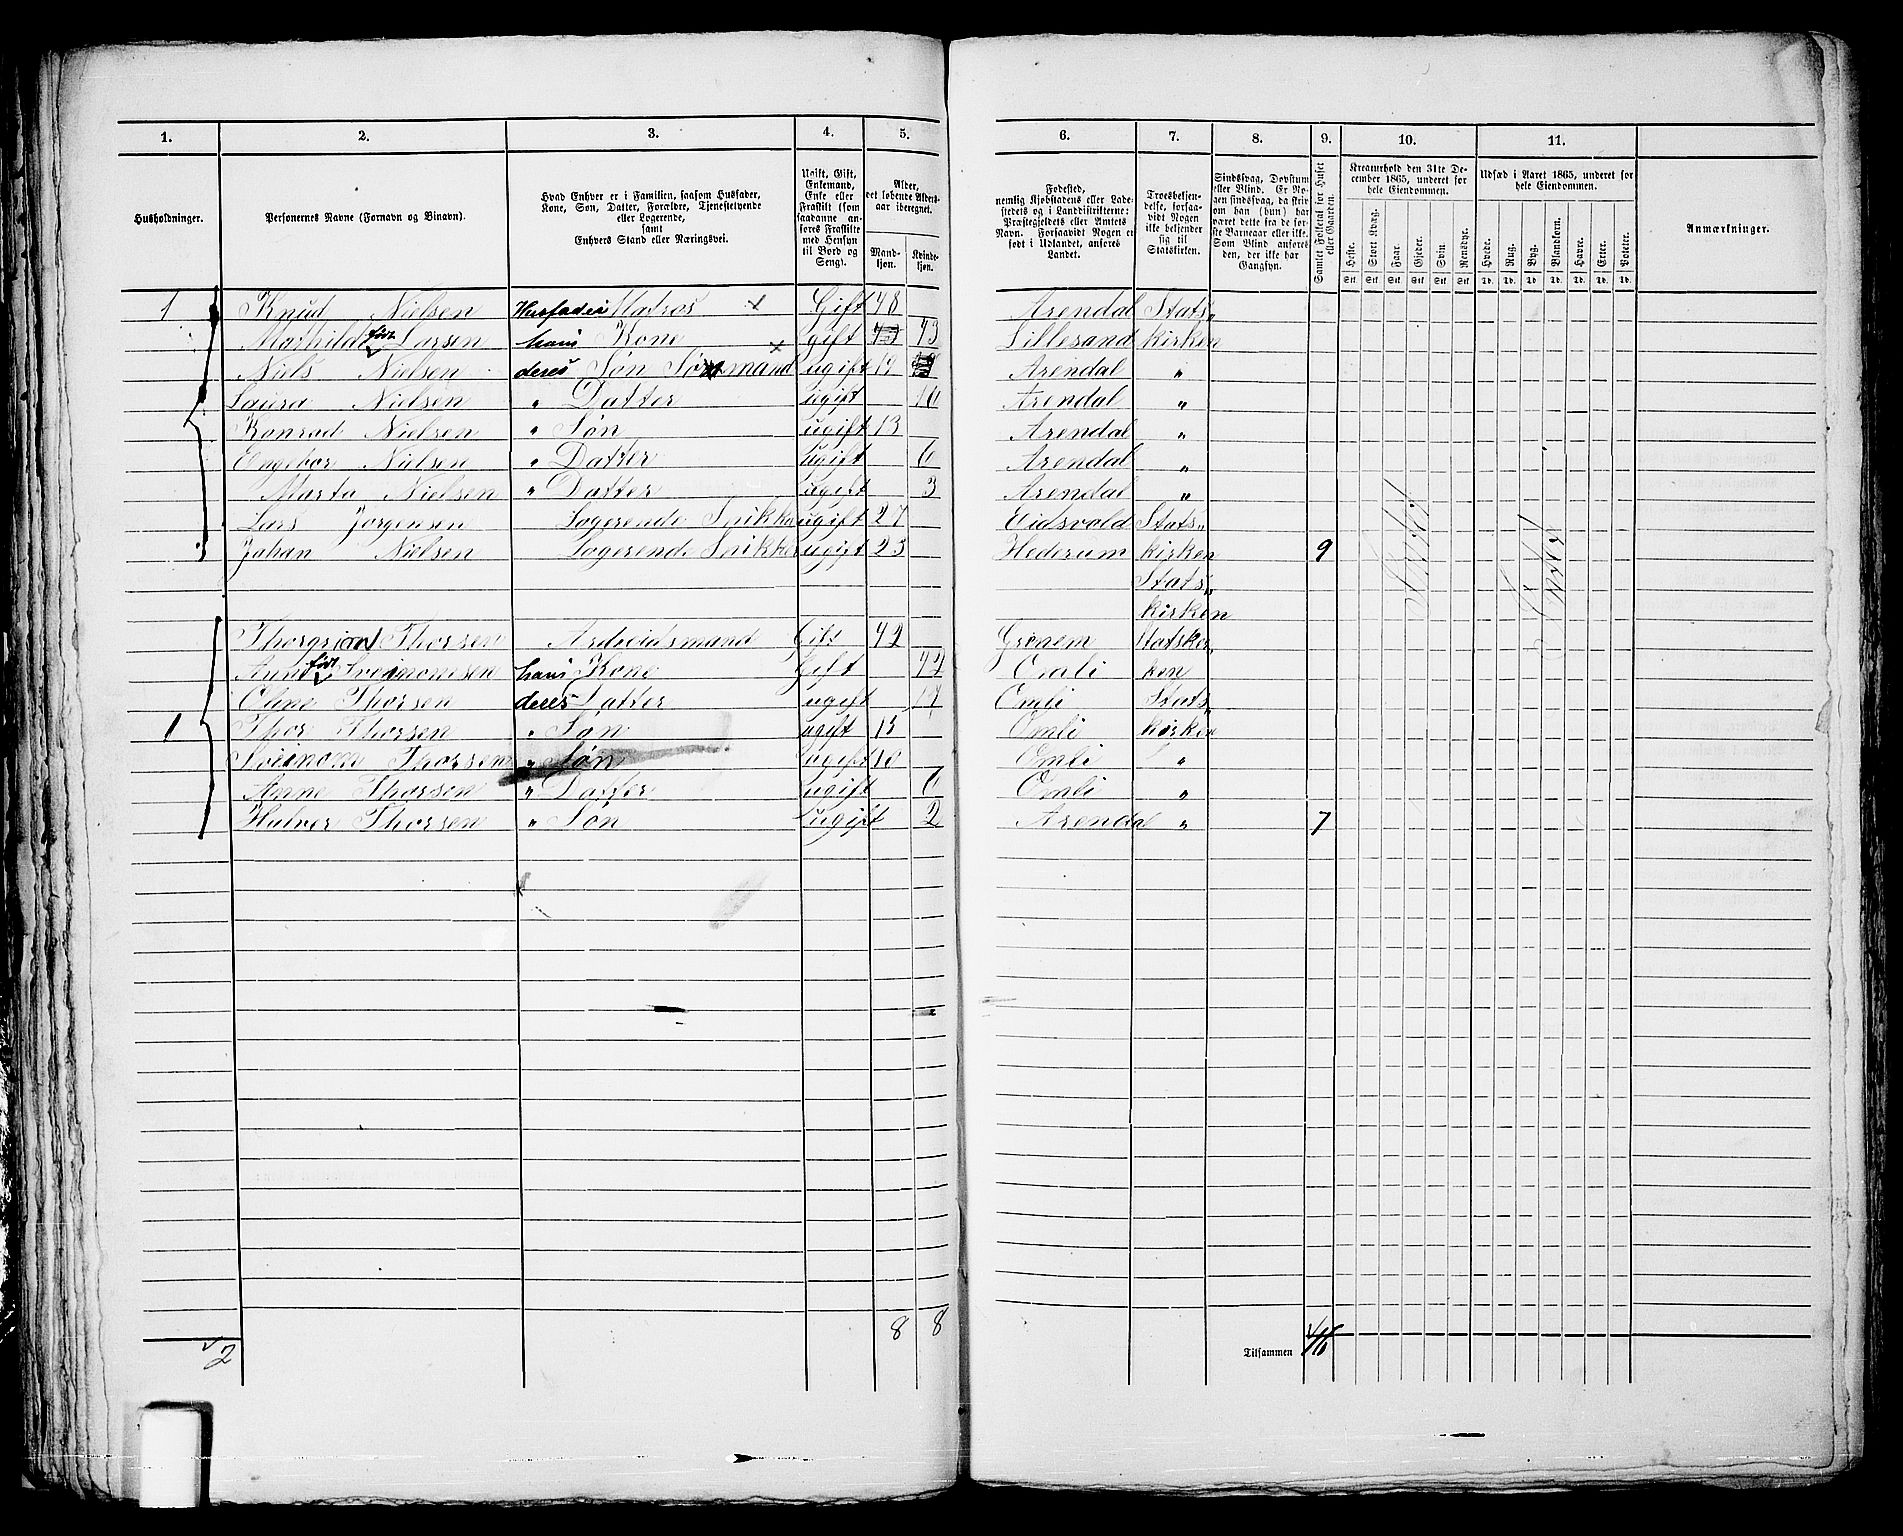 1. 2. 3. 4. 5. 6. 7. 8. 9. 10. 11.
Husholdninger.
Personernes Navne (Fornavn og Binavn).
Hvad Enhver er i Familien, saasom Husfader,
Kone, Søn, Datter, Forældre, Tjenestetyende
eller Logerende,
samt
Enhvers Stand eller Næringsvei.
Ugift, Gift,
Enkemand,
Enke eller
Fraskilt (som
saadanne an-
føres Fraskilte
med Hensyn
til Bord og
Seng).
Alder,
det løbende Alders-
aar iberegnet.
Mand-
kjøn.
Kvinde-
kjøn.
Fødested,
nemlig Kjøbstadens eller Lade-
stedets og i Landdistrikterne:
Præstegjeldets eller Amtets
Navn. Forsaavidt Nogen er
født i Udlandet, anføres
Landet.
Troesbekjen-
delse, forsaa-
vidt Nogen
ikke bekjender
sig til
Statskirken.
Sindssvag, Døvstum
eller Blind. Er No-
gen sindssvag, da skri-
ves om han (hun) har
været dette fra de før-
ste Barneaar eller ikke.
Som Blind anføres
den, der ikke har
Gangsyn.
Samlet Folketal for Huset
eller Gaarden.
Kreaturhold den 31te De-
cember 1865, underet for
hele Eiendommen.
Heste. Stort Kvæg. Faar. Gjeder. Svin. Rensdyr.
Stk. Stk. Stk. Stk. Stk. Stk.
Udsæd i Aaret 1865, underet for
hele Eiendommen.
Hvede. Rug. Byg. Blandkorn. Havre. Erter. Poteter.
Td. Td. Td. Td. Td. Td. Td.
Anmærkninger.
1 Knud Nielsen Husfader Matros x Gift 48 Arendal Stats„
Mathilde født Larsen hans Kone gift 43 Lillesand kirken
Niels Nielsen deres Søn Sømand x ugift 19 Arendal „
Laura Nielsen „ Datter ugift 16 Arendal „
Konrad Nielsen „ Søn ugift 13 Arendal „
Engebor Nielsen „ Datter ugift 6 Arendal „
Marta Nielsen „ Datter ugift 3 Arendal „
Lars Jørgensen Logerende Snikker ugift 27 Eidsvold Stats„
Johan Nielsen Logerende Snikker ugift 23 Hederum kirken 9
Stats„
kirken
Thorsen Arbeidsmand Gift 42 Statskir„
født hans Kone Gift 42 Omli ken
Oline Thorsen deres Datter ugift 17 Omli Stats„
1 Thor Thorsen „ Søn ugift 15 Omli kirken
Thorsen „ Søn ugift 10 Omli „
Anne Thorsen „ Datter ugift 6 Omli „
Halvor Thorsen „ Søn ugift 2 Arendal „ 7
2 8 8
Tilsammen 16